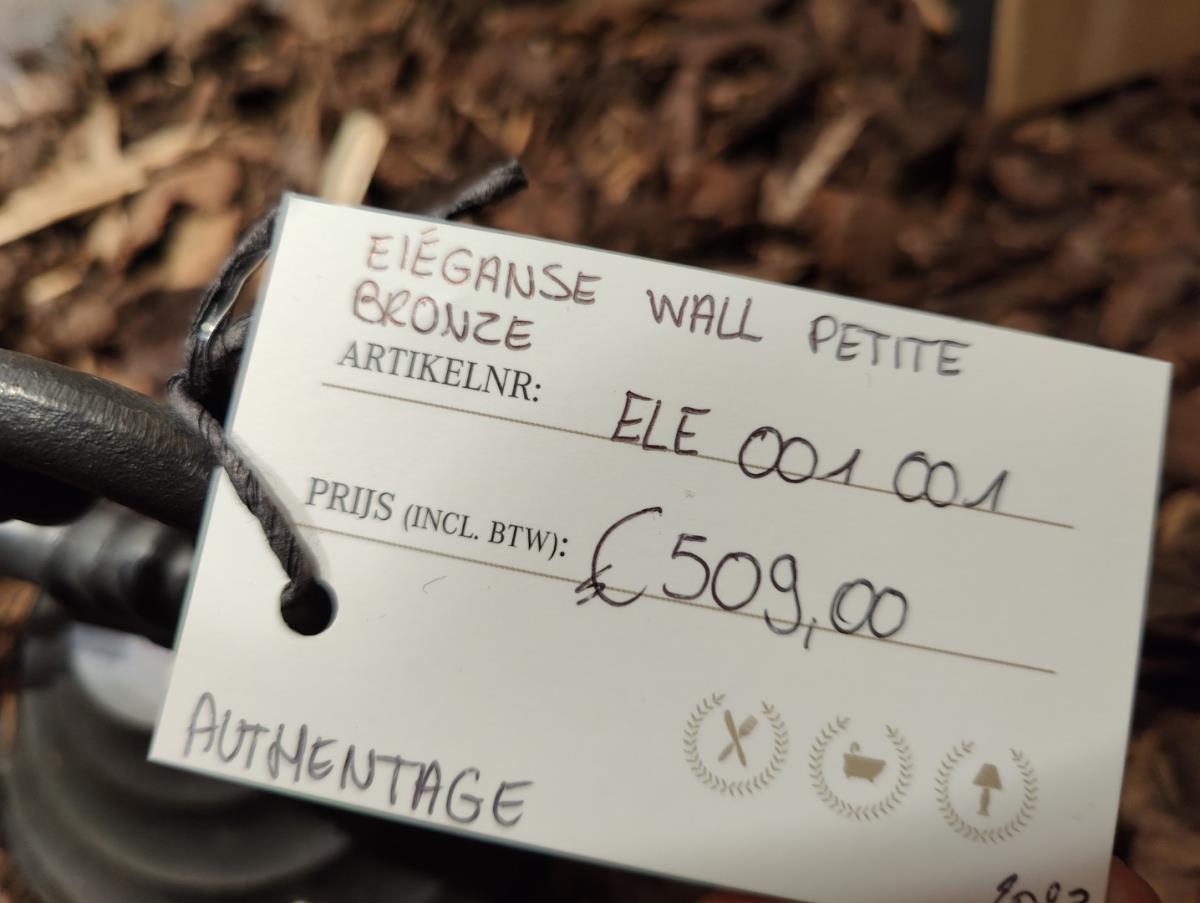 ElÉGANSE WALL PETITE
BRONZE
ARTIKELNR: ELE 001 001
PRIJS (INCL. BTW): € 509,00
AUTHENTAGE